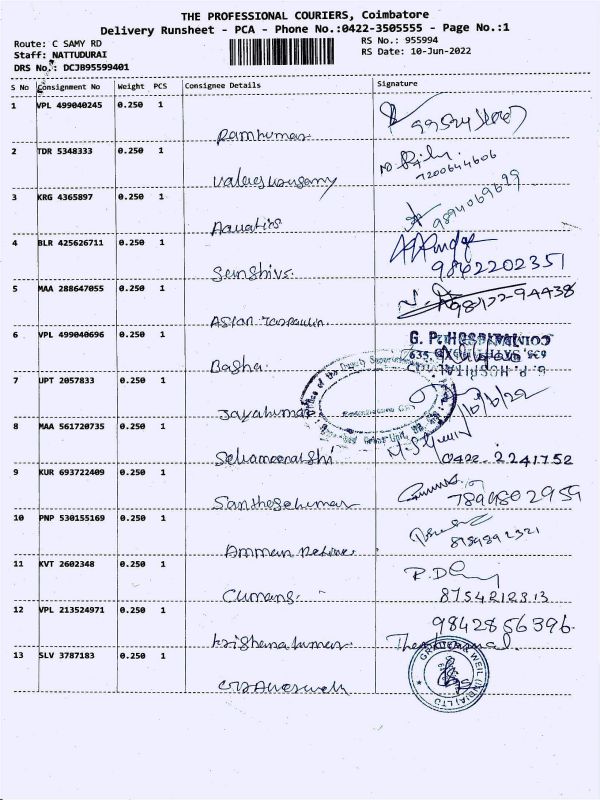 THE PROFESSIONAL COURIERS, Coimbatore
Delivery Runsheet - PCA - Phone No.:0422-3505555 - Page No.:1
Route: C SAMY RD RS No.: 955994
Staff: NATTUDURAI RS Date: 10-Jun-2022
DRS No.: DCJB95599401
S No Consignment No Weight PCS Consignee Details Signature
1 VPL 499040245 0.250 1
Ramkumar
2 TDR 5348333 0.250 1
7200644606
3 KRG 4365897 0.250 1
Aquatics 9894069699
4 BLR 425626711 0.250 1
Senshivs 9862202351
5 MAA 288647055 0.250 1
Asian Tarpaulin
6 VPL 499040696 0.250 1
G. P. HOSPITAL
Basha
7 UPT 2057833 0.250 1
Jayakumar
8 MAA 561720735 0.250 1
Selvameenakshi 0422-2241752
9 KUR 693722409 0.250 1
Santhoshkumar 7894802959
10 PNP 530155169 0.250 1
Amman 8754892321
11 KVT 2602348 0.250 1
R.D
Cumans 8754212313
12 VPL 213524971 0.250 1
9842856396
Krishnakumar
13 SLV 3787183 0.250 1
& WEIL (INDIA) LTD